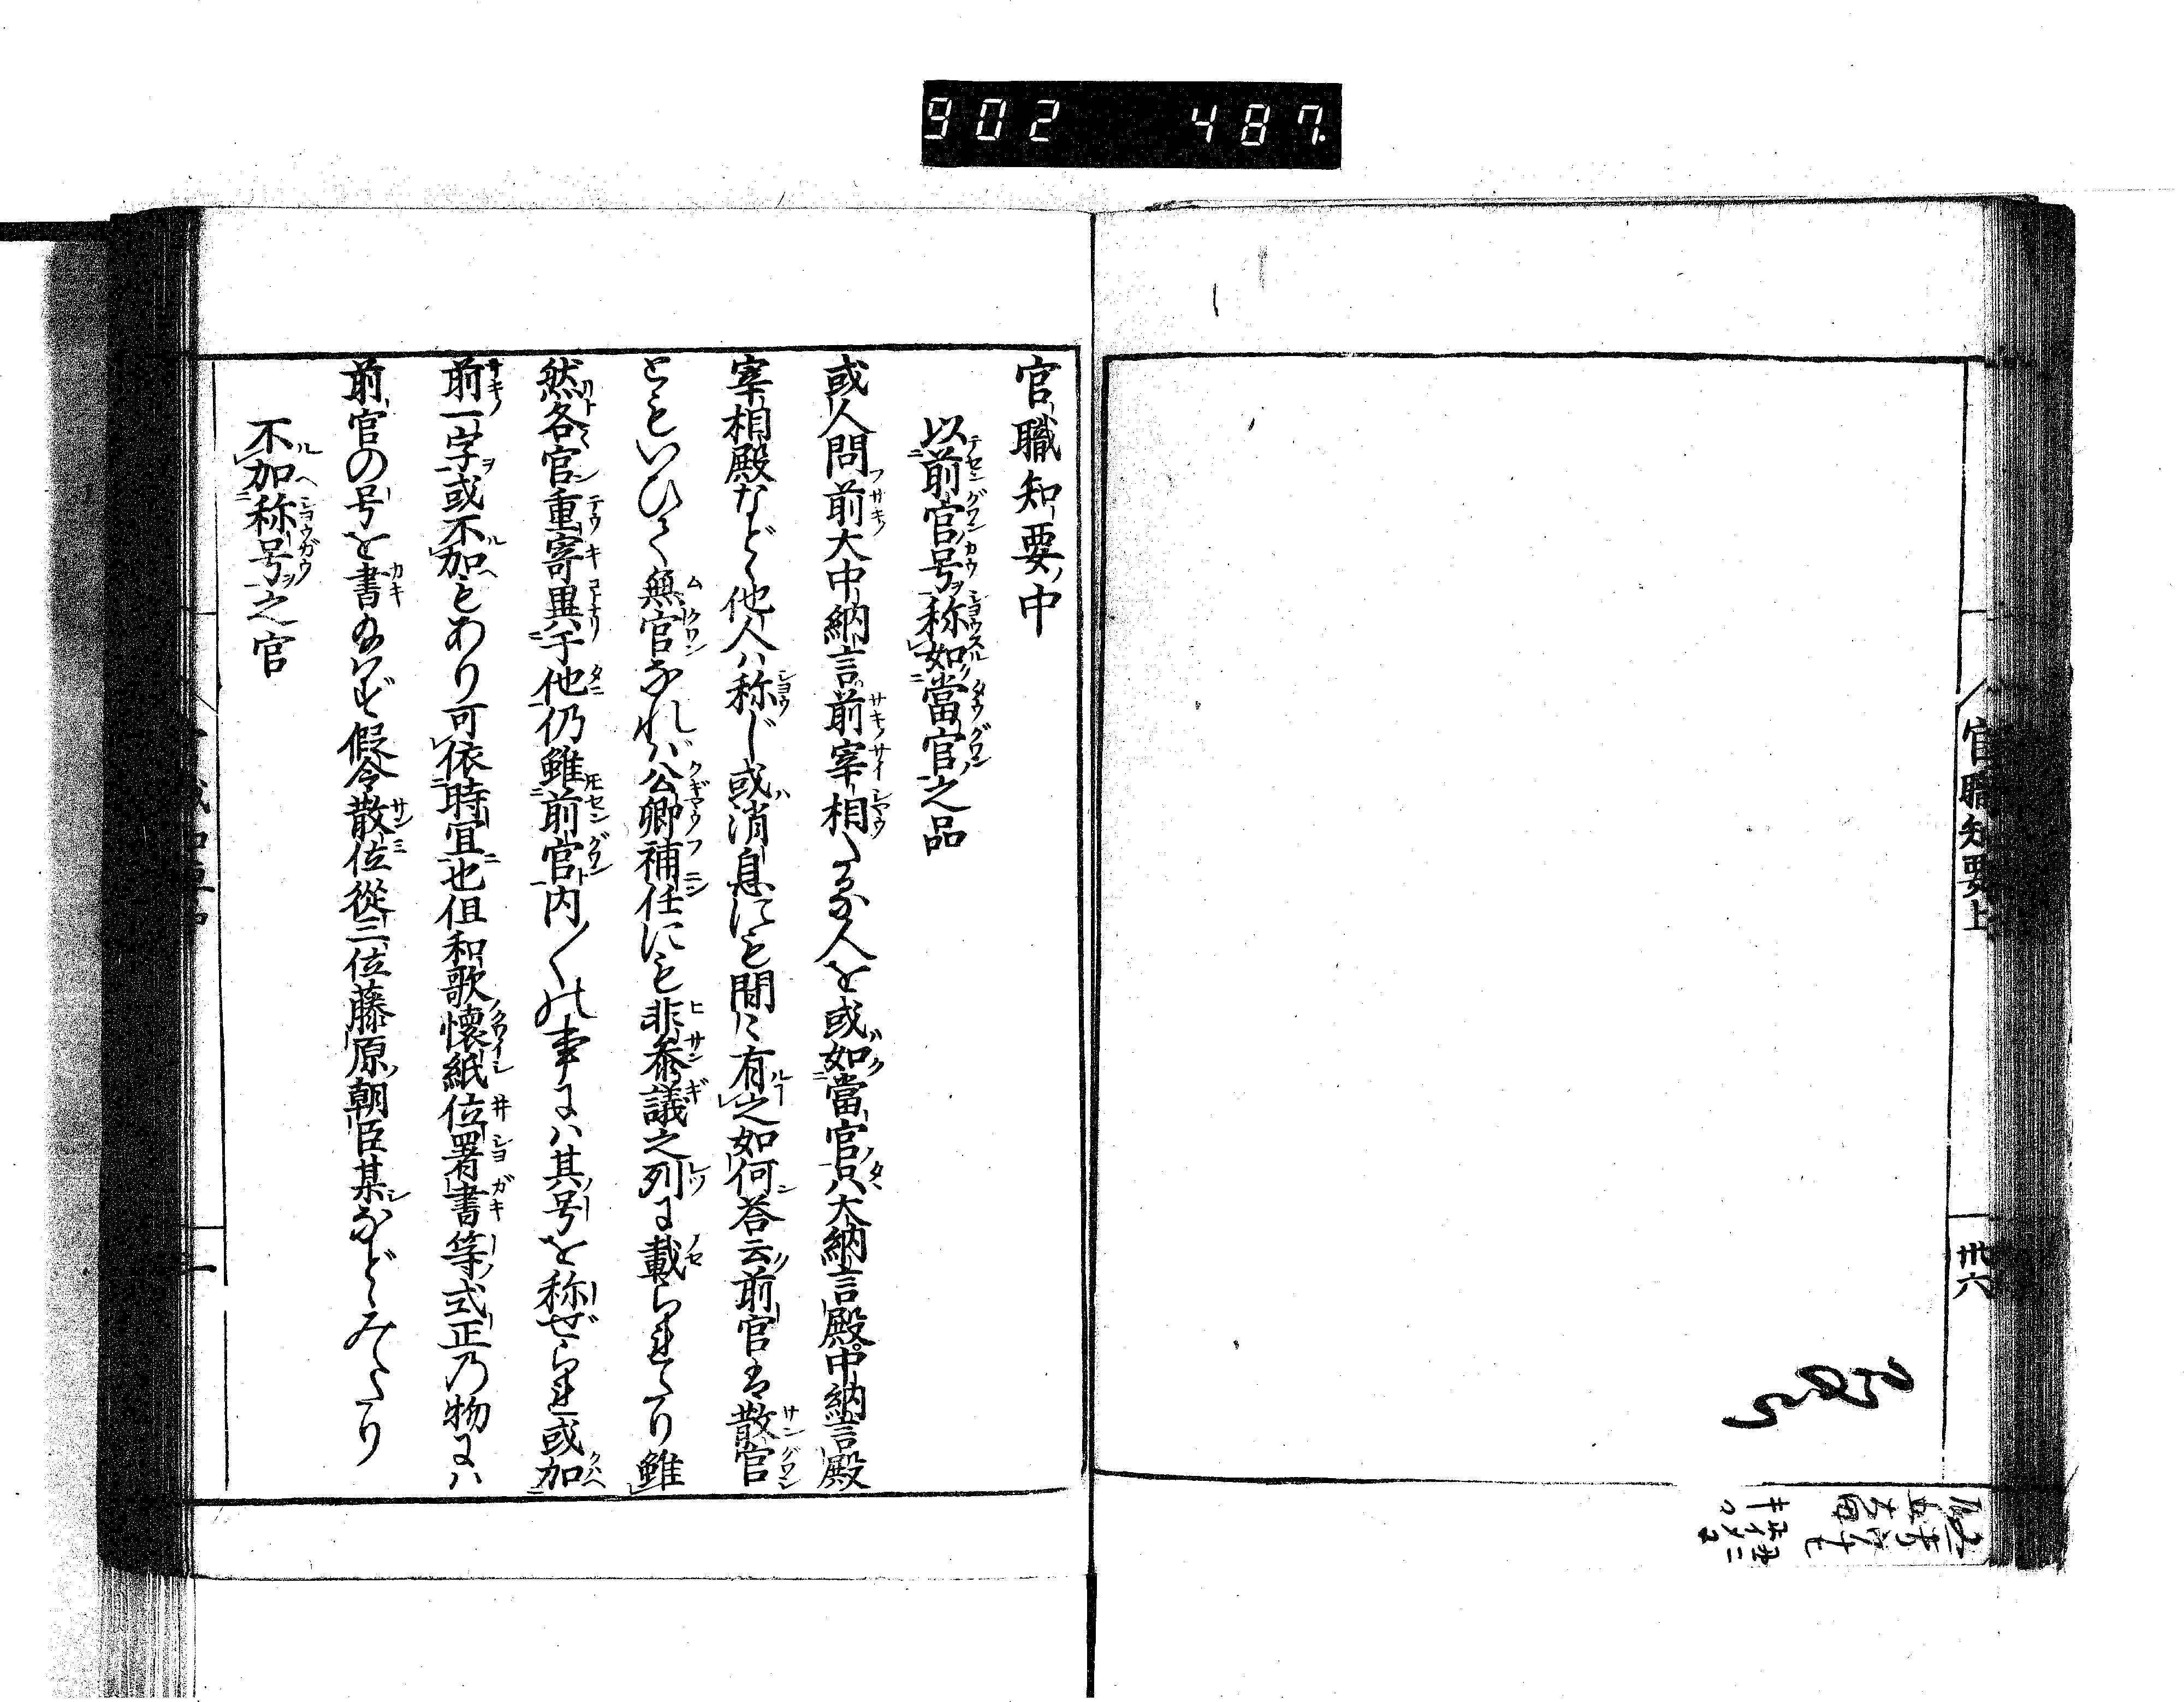 902 487
官職知要上
卅六
官職知要ノ中
以前官号称如當官之品
或人問前大中納言前宰相たる人を或如當官只大納言殿中納言殿
宰相殿など他人ハ称じ或消息にも間に有之如何荅云前官は散官
ともいひて無官なれバ公卿補任にも非参議之列に載られたり雖
然各官重寄異于他仍雖前官内〱の事にハ其号を称ぜられ或加
前一字或不加もあり可依時宜也但和歌懐紙位署書等式正乃物にハ
前官の号を書假令散位従三位藤原朝臣某などゝみへたり
不加称号之官